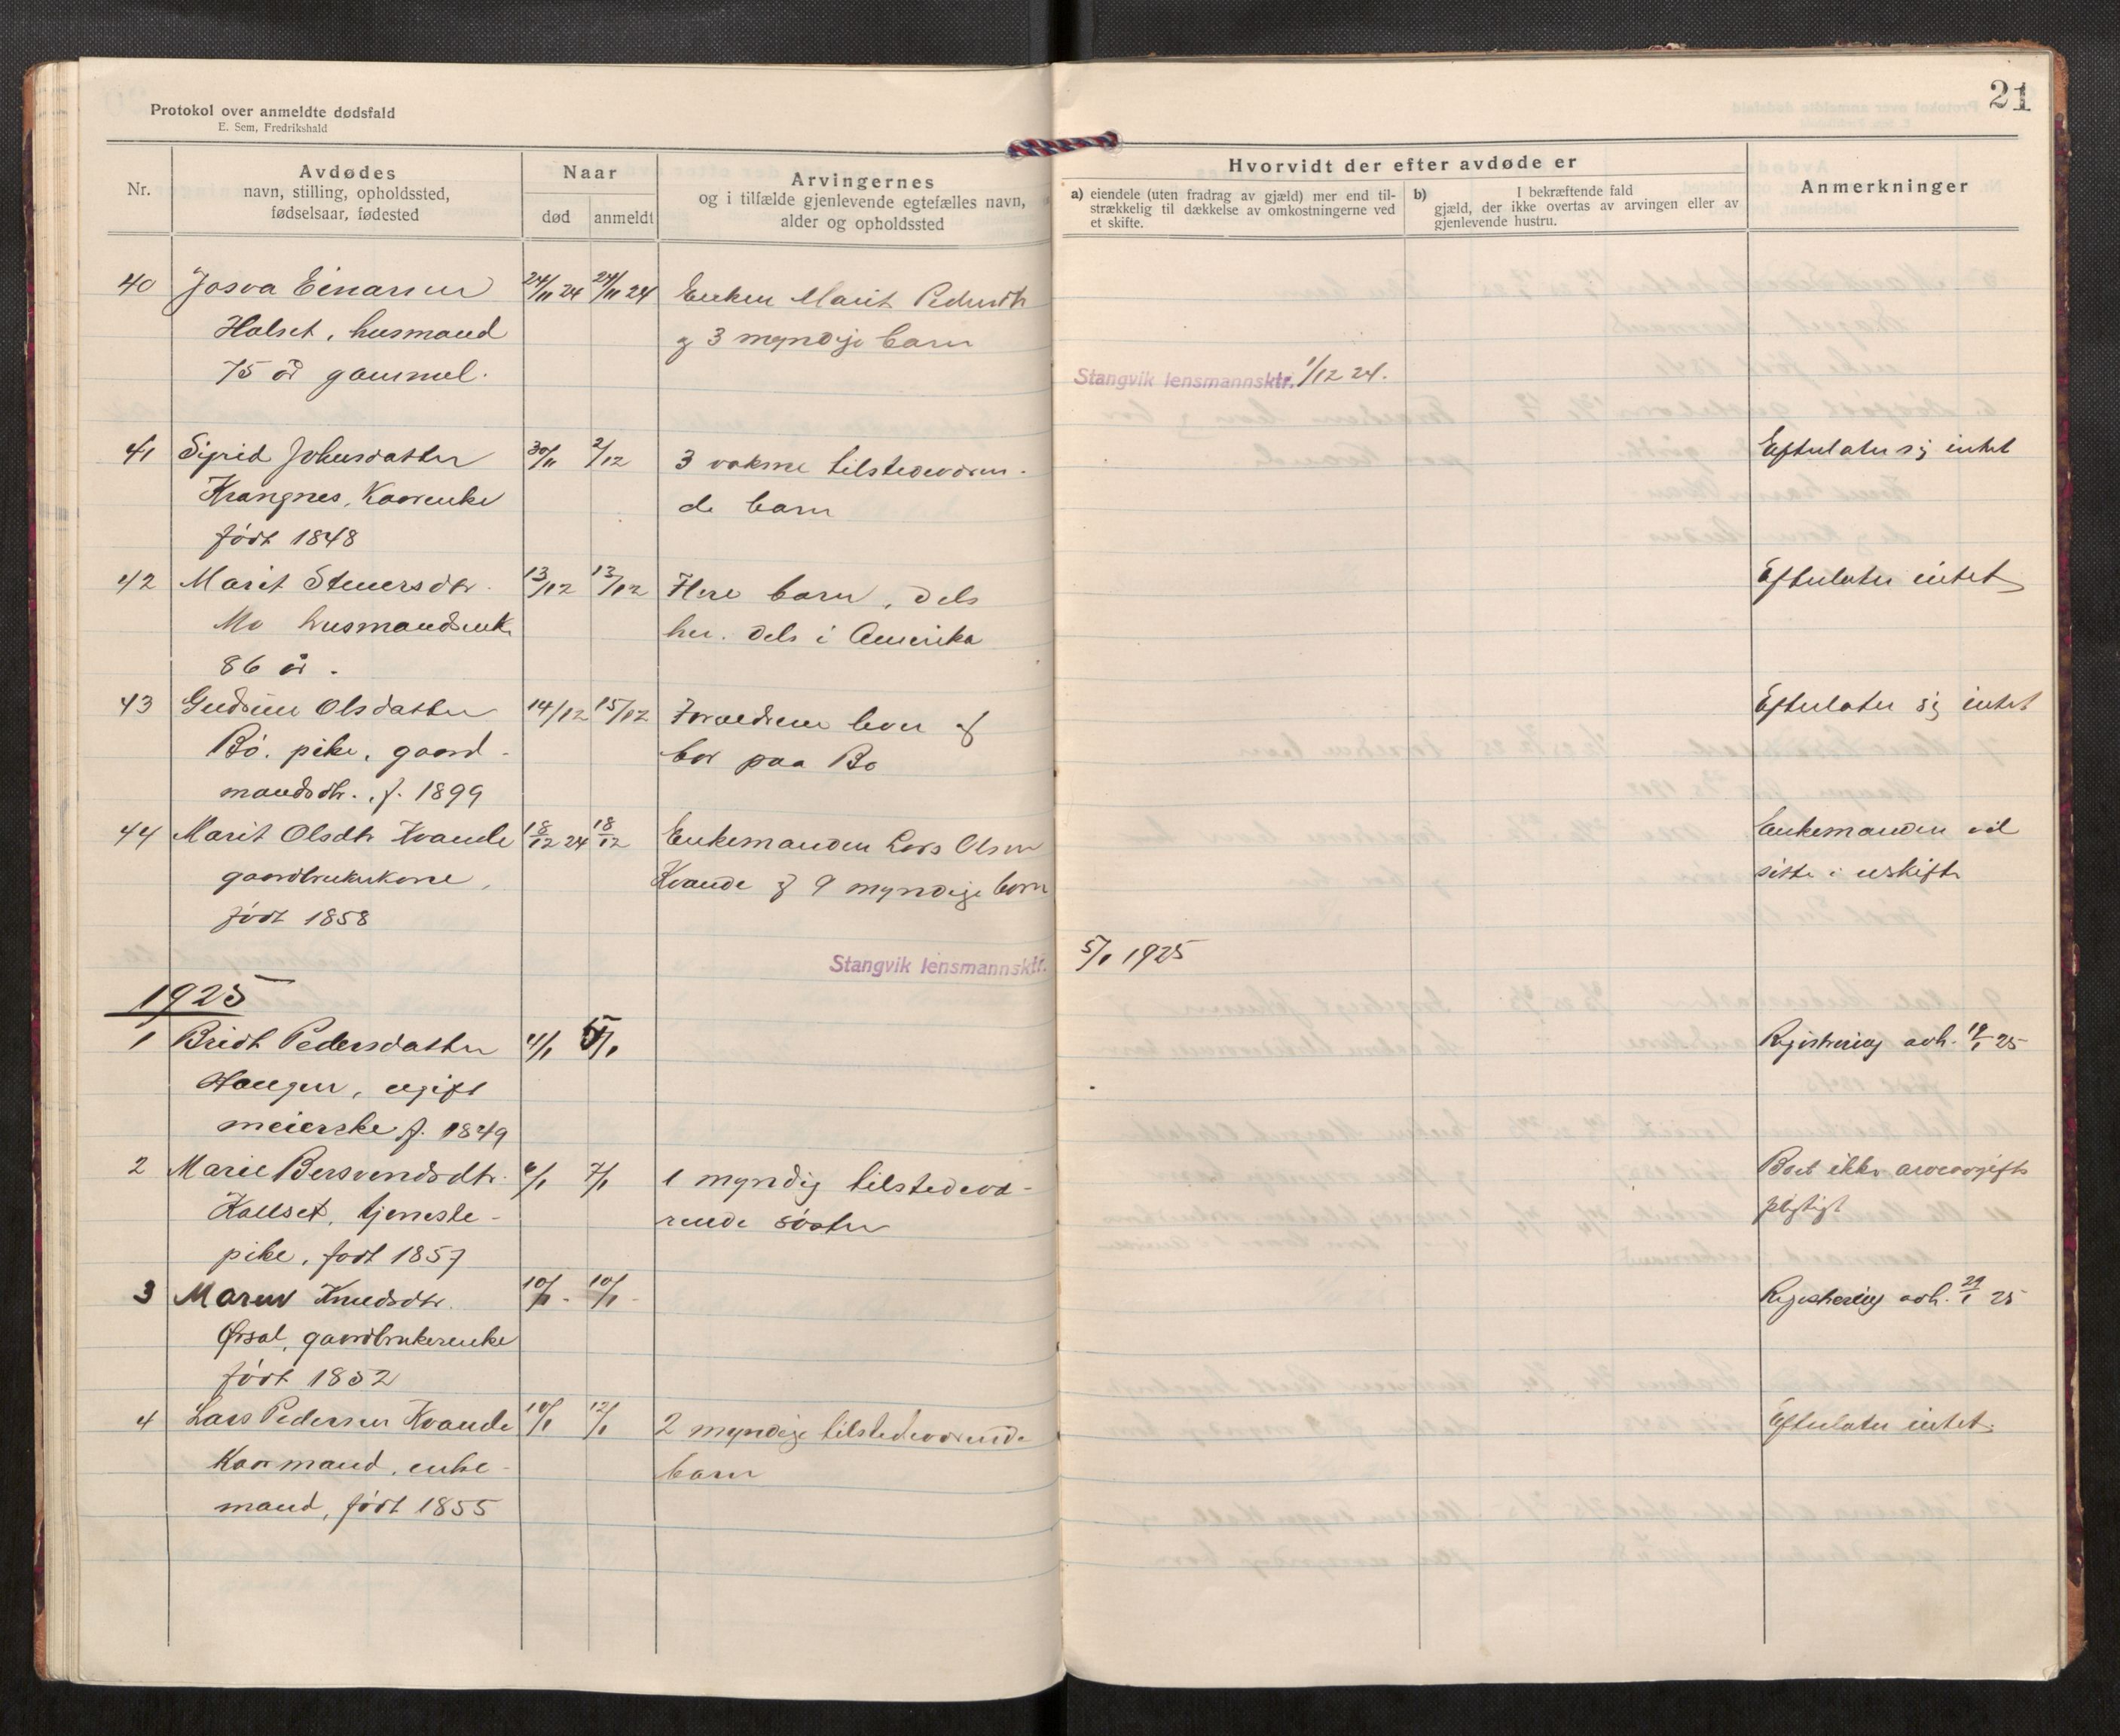 Protokol over anmeldte dødsfald
E. Sem, Fredrikshald
21
Nr.
Avdødes
navn, stilling, opholdssted,
fødselsaar, fødested
Naar
død
anmeldt
Arvingernes
og i tilfælde gjenlevende egtefælles navn,
alder og opholdssted
Hvorvidt der efter avdøde er
a) eiendele (uten fradrag av gjæld) mer end til-
strækkelig til dækkelse av omkostningerne ved
et skifte.
b) I bekræftende fald
gjæld, der ikke overtas av arvingen eller av
gjenlevende hustru.
Anmerkninger
40 Josva Einarsen 24/11 24 24/11 24 Enken Marit Pedersdtr
Halset, husmand og 3 myndige barn
75 år gammel. Stangvik lensmannsktr. 1/12 24.
41 Sigrid Johnsdatter 30/11 2/12 3 voksne tilstedeværen- Efterlater sig intet
Krangnes, Kaarenke de barn
født 1848
42 Marit Steuersdtr. 13/12 13/12 Flere barn, dels Efterlater intet
Mo husmandsenke her. dels i Amerika
86 år.
43 Gudrun Olsdatter 14/12 15/12 Forældrene lever og Efterlater sig intet
Bö. pike, gaard- bor paa Bö
mandsdtr. f. 1899
44 Marit Olsdtr Kvande 18/12 24 18/12 Enkemanden Lars Olsen Enkemanden vil
gaardbrukerkone, Kvande og 9 myndige barn sitte i uskifte
født 1858
Stangvik lensmannsktr. 5/1 1925
1925
1 Bridt Pedersdatter 4/1 5/1 Registrering avh. 19/1 25
Haugen, ugift
meierske f. 1849
2 Marie Bersvendsdtr. 6/1 7/1 1 myndig tilstedevæ- Boet ikke arveavgifts
Kallset, tjeneste- rende søster pligtigt
pike, født 1857
3 Maren Knudsdtr. 10/1 - 10/1 - Registrering avh. 29/1 25
Ørsal, gaardbrukerenke
født 1852
4 Lars Pedersen Kvande 10/1 12/1 2 myndige tilstedeværende Efterlater intet.
Kaarmand, enke- barn
mand, født 1855